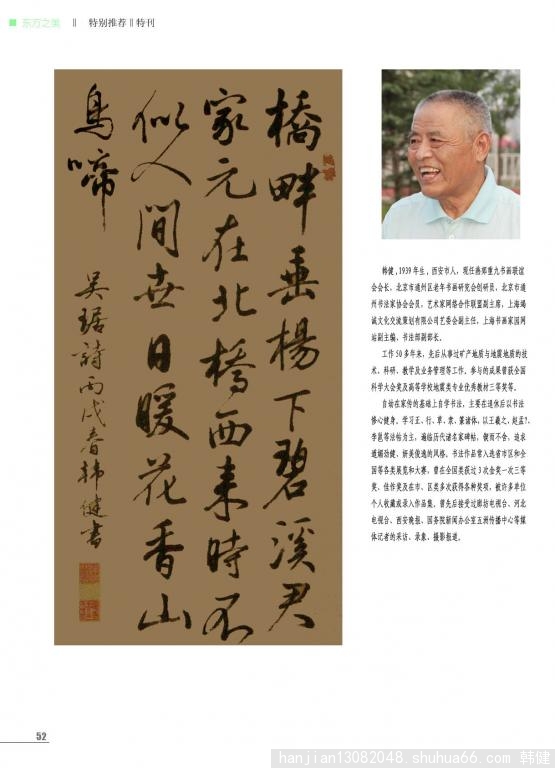 东方之美 || 特别推荐 || 特刊
橋畔垂楊下碧溪君
家元在北橋西来時不
似人間世日暖花香山
鳥啼
吴琚詩丙戌春韩健書
韩健,1939年生,西安市人,现任燕郊重九书画联谊
会会长、北京市通州区老年书画研究会创研员、北京市通
州书法家协会会员,艺术家网络合作联盟副主席,上海竭
诚文化交流策划有限公司艺委会副主任,上海书画家园网
站副主编、书法部副部长。
工作50多年来,先后从事过矿产地质与地震地质的技
术、科研、教学及业务管理等工作。参与的成果曾获全国
科学大会奖及高等学校地震类专业优秀教材三等奖等。
自幼在家传的基础上自学书法,主要在退休后以书法
修心健身。学习正、行、草、隶、篆诸体,以王羲之、赵孟?、
李邕等法帖为主,遍临历代诸名家碑帖,锲而不舍,追求
遒媚劲健、妍美俊逸的风格。书法作品常入选省市区和全
国等各类展览和大赛,曾在全国类获过3次金奖一次三等
奖、佳作奖及在市、区类多次获得各种奖项,被许多单位
个人收藏或录入作品集。曾先后接受过廊坊电视台、河北
电视台、西安晚报、国务院新闻办公室五洲传播中心等媒
体记者的采访、录象、摄影报道。
52
hanjian13082048.shuhua66.com 韩健